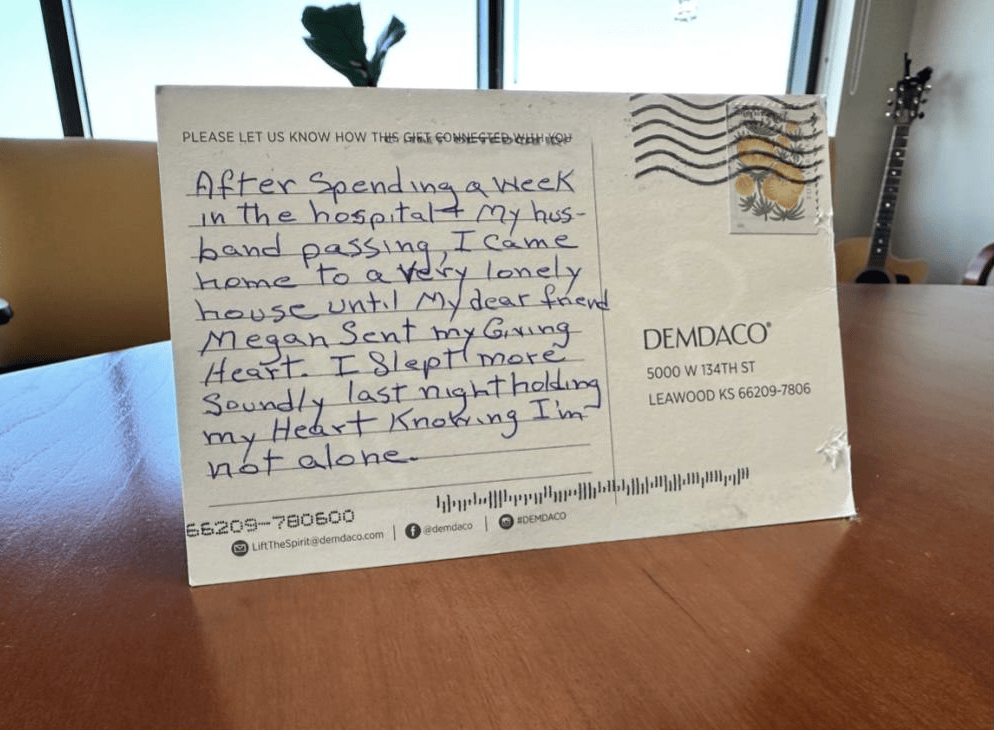 PLEASE LET US KNOW HOW THIS GIFT CONNECTED WITH YOU
After Spending a week
in the hospital + My hus-
band passing, I came
home to a very lonely
house until My dear friend
Megan Sent my Giving
Heart. I Slept more
Soundly last night holding
my Heart Knowing I'm
not alone.
DEMDACO®
5000 W 134TH ST
LEAWOOD KS 66209-7806
66209-780600
LiftTheSpirit@demdaco.com | @demdaco | #DEMDACO